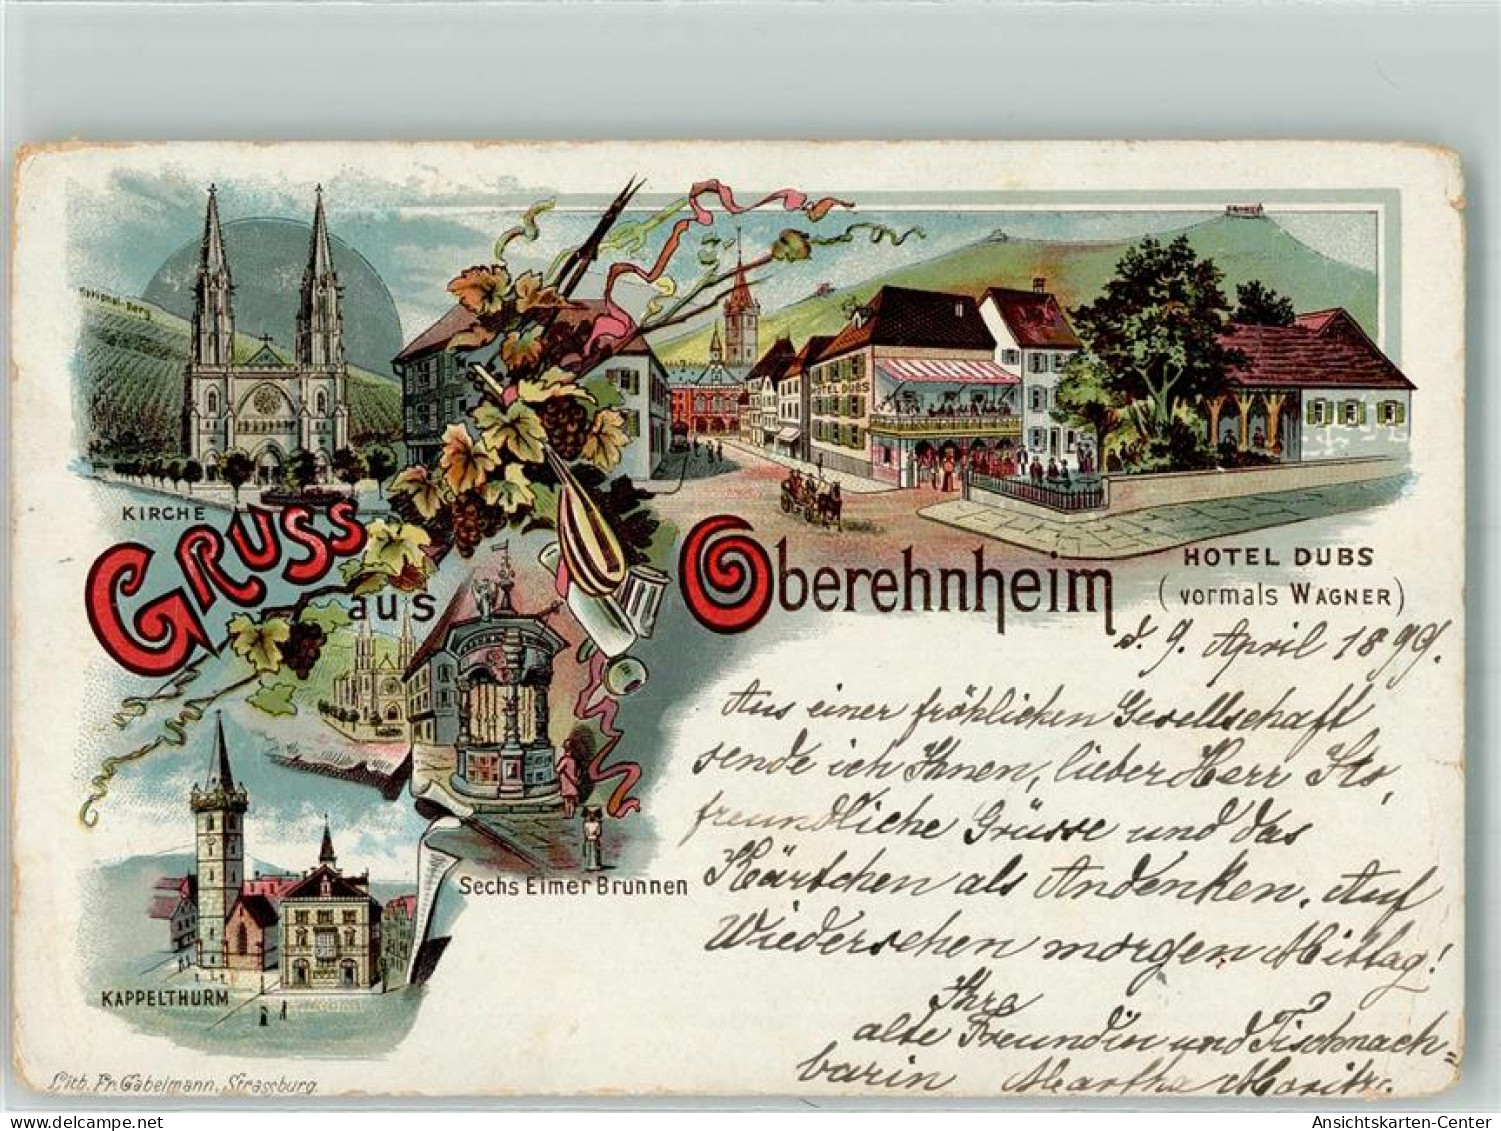 National-Berg
KIRCHE
GRUSS
aus
Oberehnheim
HOTEL DUBS
HOTEL DUBS
(vormals WAGNER)
d. 9. April 1899.
Aus einer fröhlichen Gesellschaft
sende ich Ihnen, lieber Herr
freundliche Grüsse und das
Kärtchen als Andenken. Auf
Wiedersehen morgen Mittag!
Ihre
alte Freundin und Tischnach=
barin Martha Moritz.
Sechs Eimer Brunnen
KAPPELTHURM
Lith. Fr. Gabelmann, Strassburg.
Ansichtskarten-Center